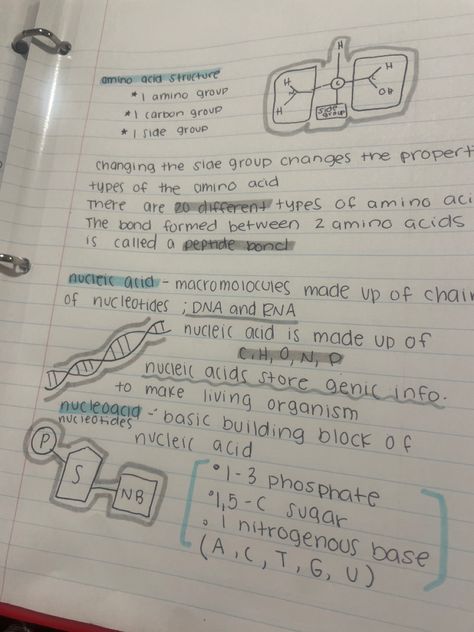 H
amino acid structure
* 1 amino group
* 1 carbon group
* 1 side group
H
N
H
C
C
H
OD
side group
changing the side group changes the propert
types of the amino acid
There are 20 different types of amino aci
The bond formed between 2 amino acids
is called a peptide bond
nucleic acid - macromolocules made up of chain
of nucleotides ; DNA and RNA
nucleic acid is made up of
C, H, O, N, P
nucleic acids store genic info.
to make living organism
nucleoacid - basic building block of
nucleotides
nucleic acid
P
S
NB
• 1-3 phosphate
• 1, 5-C sugar
• 1 nitrogenous base
(A, C, T, G, U)